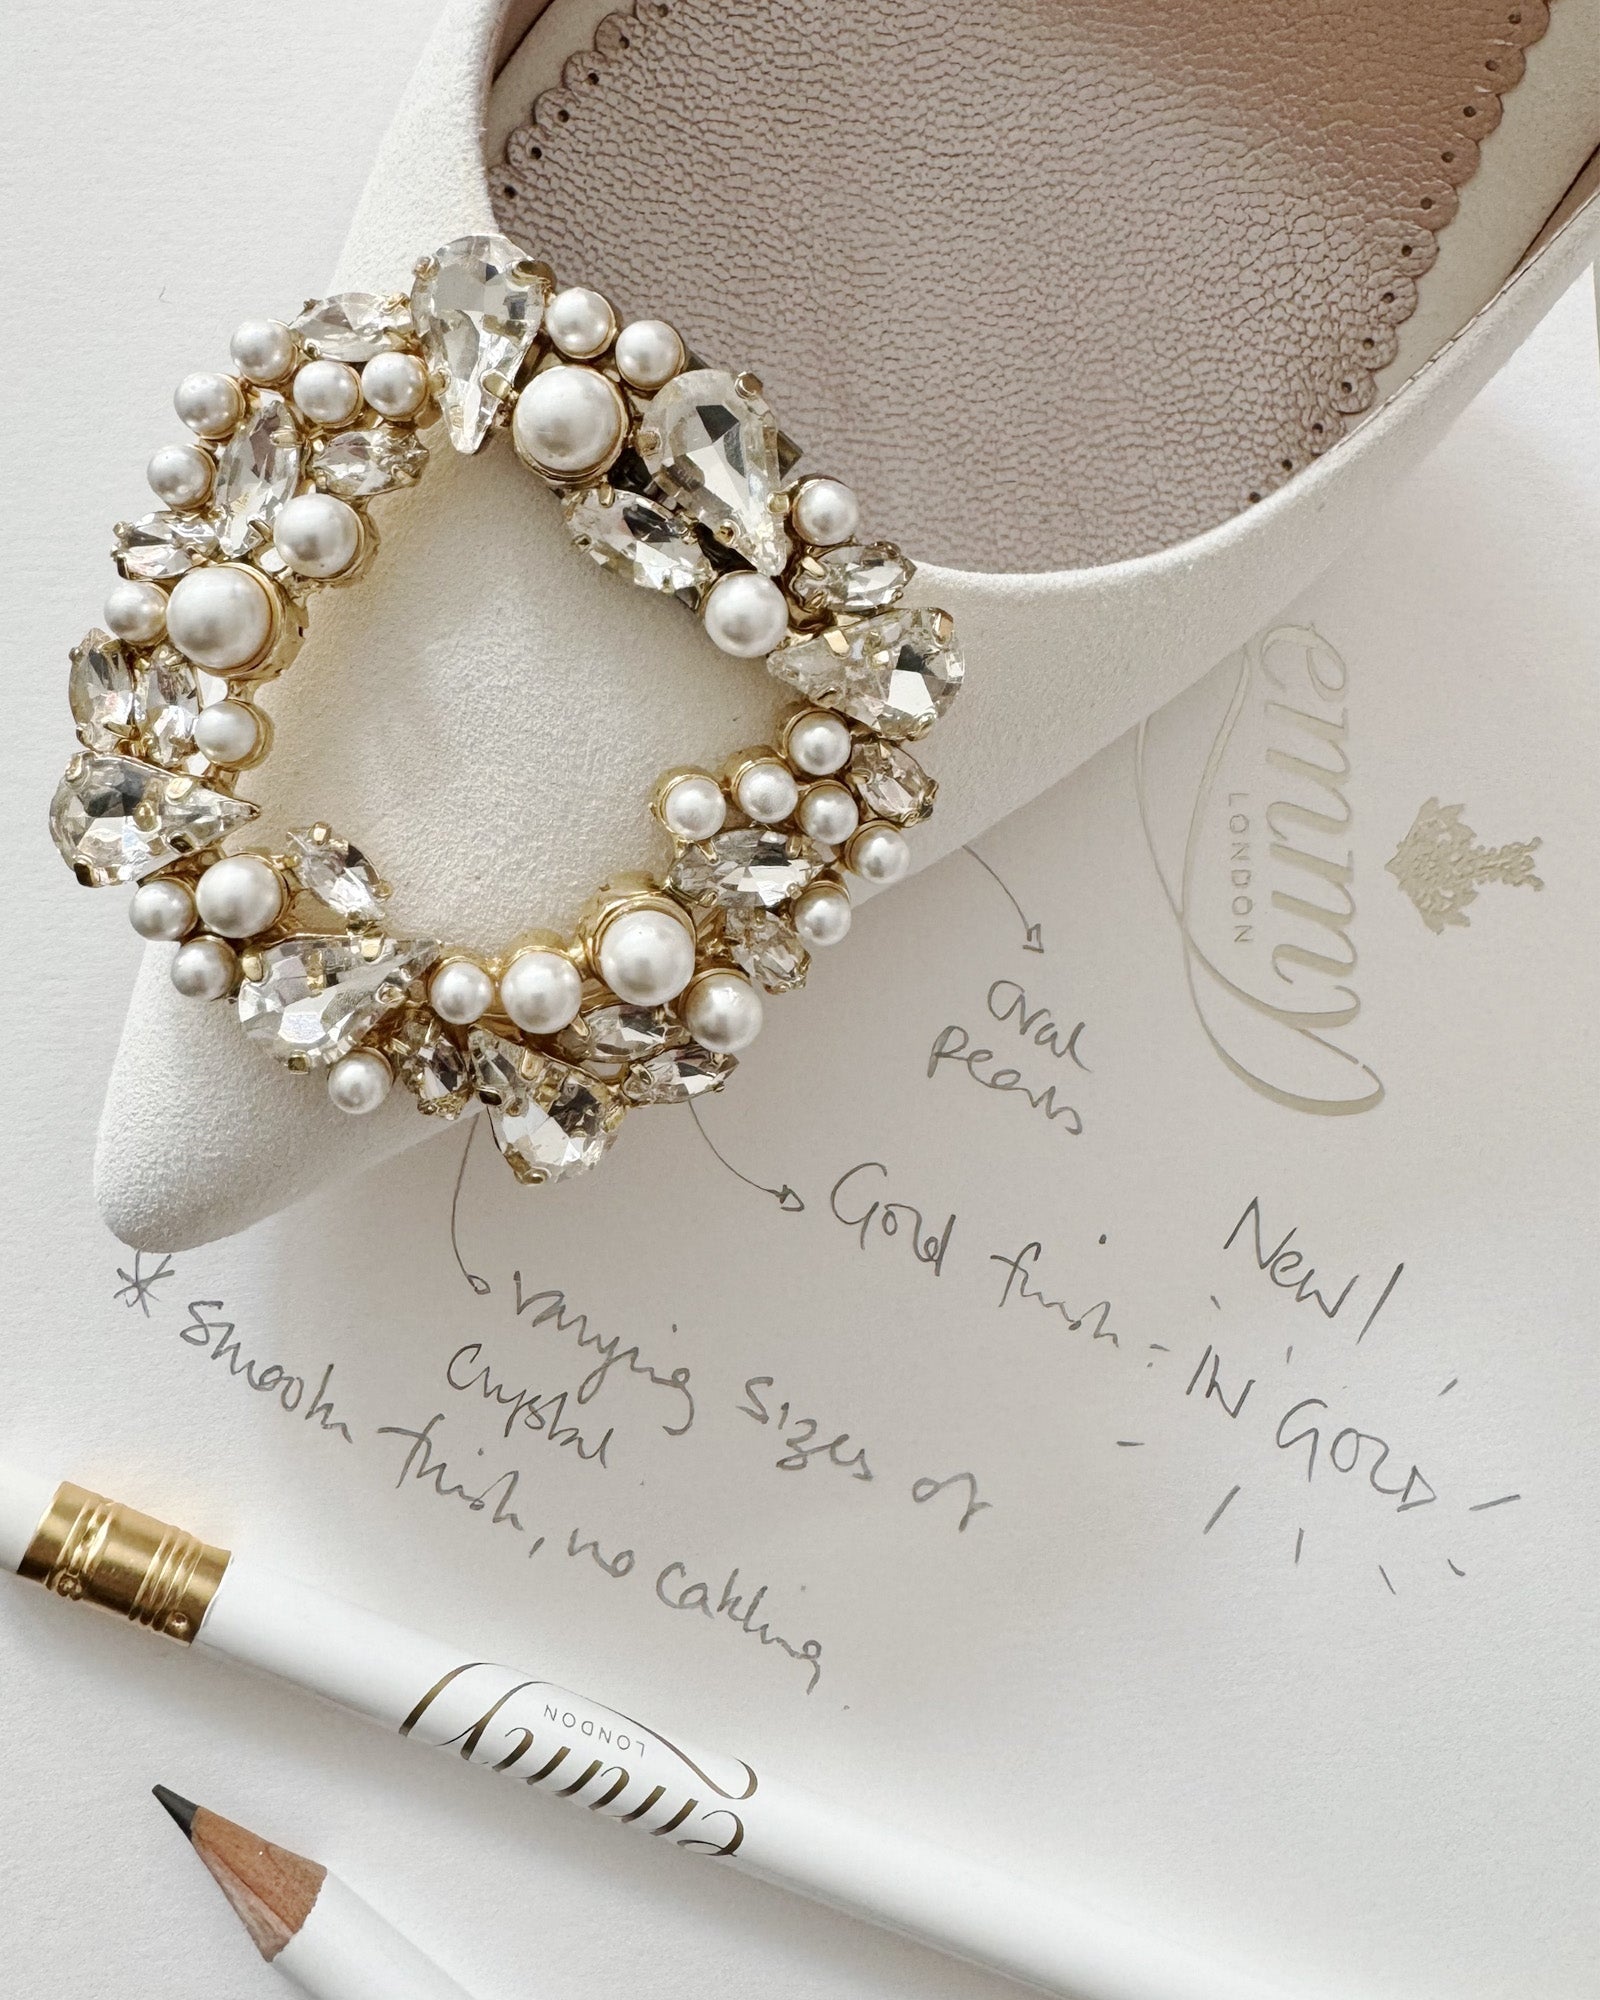 emmy
LONDON
oval
Pearls
Gold finish -
New!
IN GOLD
varying sizes of
crystal
* Smooth finish, no catching
emmy
LONDON